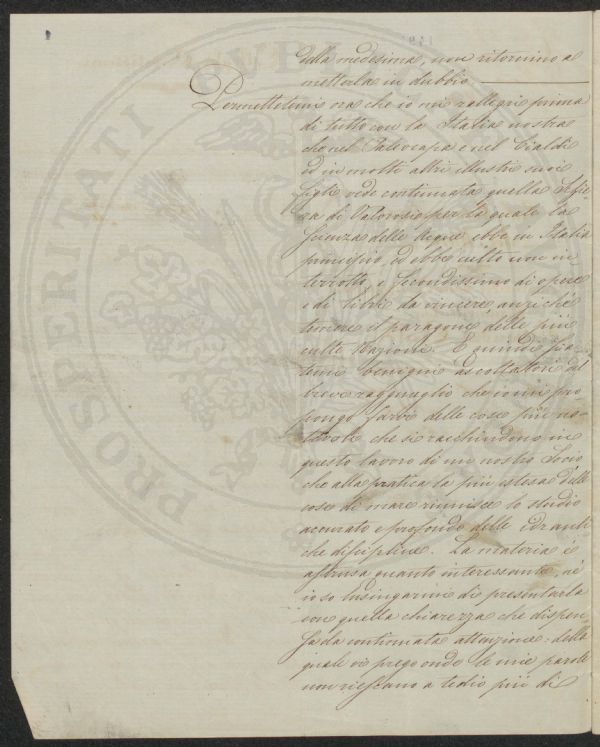 della medesima, non ritornino a
metterla in dubbio
Permettetemi ora che io mi rallegri prima
di tutto con la Italia nostra
che nel Paleocapa e nel Cialdi
ed in molti altri illustri suoi
figli vede continuata quella
di valorosi per la quale la
scienza delle Acque ebbe in Italia
principio, ed ebbe culto non in
terrotto, e fecondissimo di opere
e di libri da vincere, anziché
temere il paragone delle più
culte Nazioni. E quindi sia
temi benigni ascoltatori del
breve ragguaglio che io mi pro-
pongo farvi delle cose più no-
tevoli che si racchiudono in
questo lavoro di un nostro Socio
che alla pratica la più estesa delle
cose di mare riunisce lo studio
accurato e profondo delle idrauli
che discipline. La materia è
astrusa quanto interessante, nè
io so lusingarmi di presentarla
con quella chiarezza che dispen-
sa da continuata attenzione: della
quale vi prego onde le mie parole
non riescano a tedio più di
PROSPERITATI